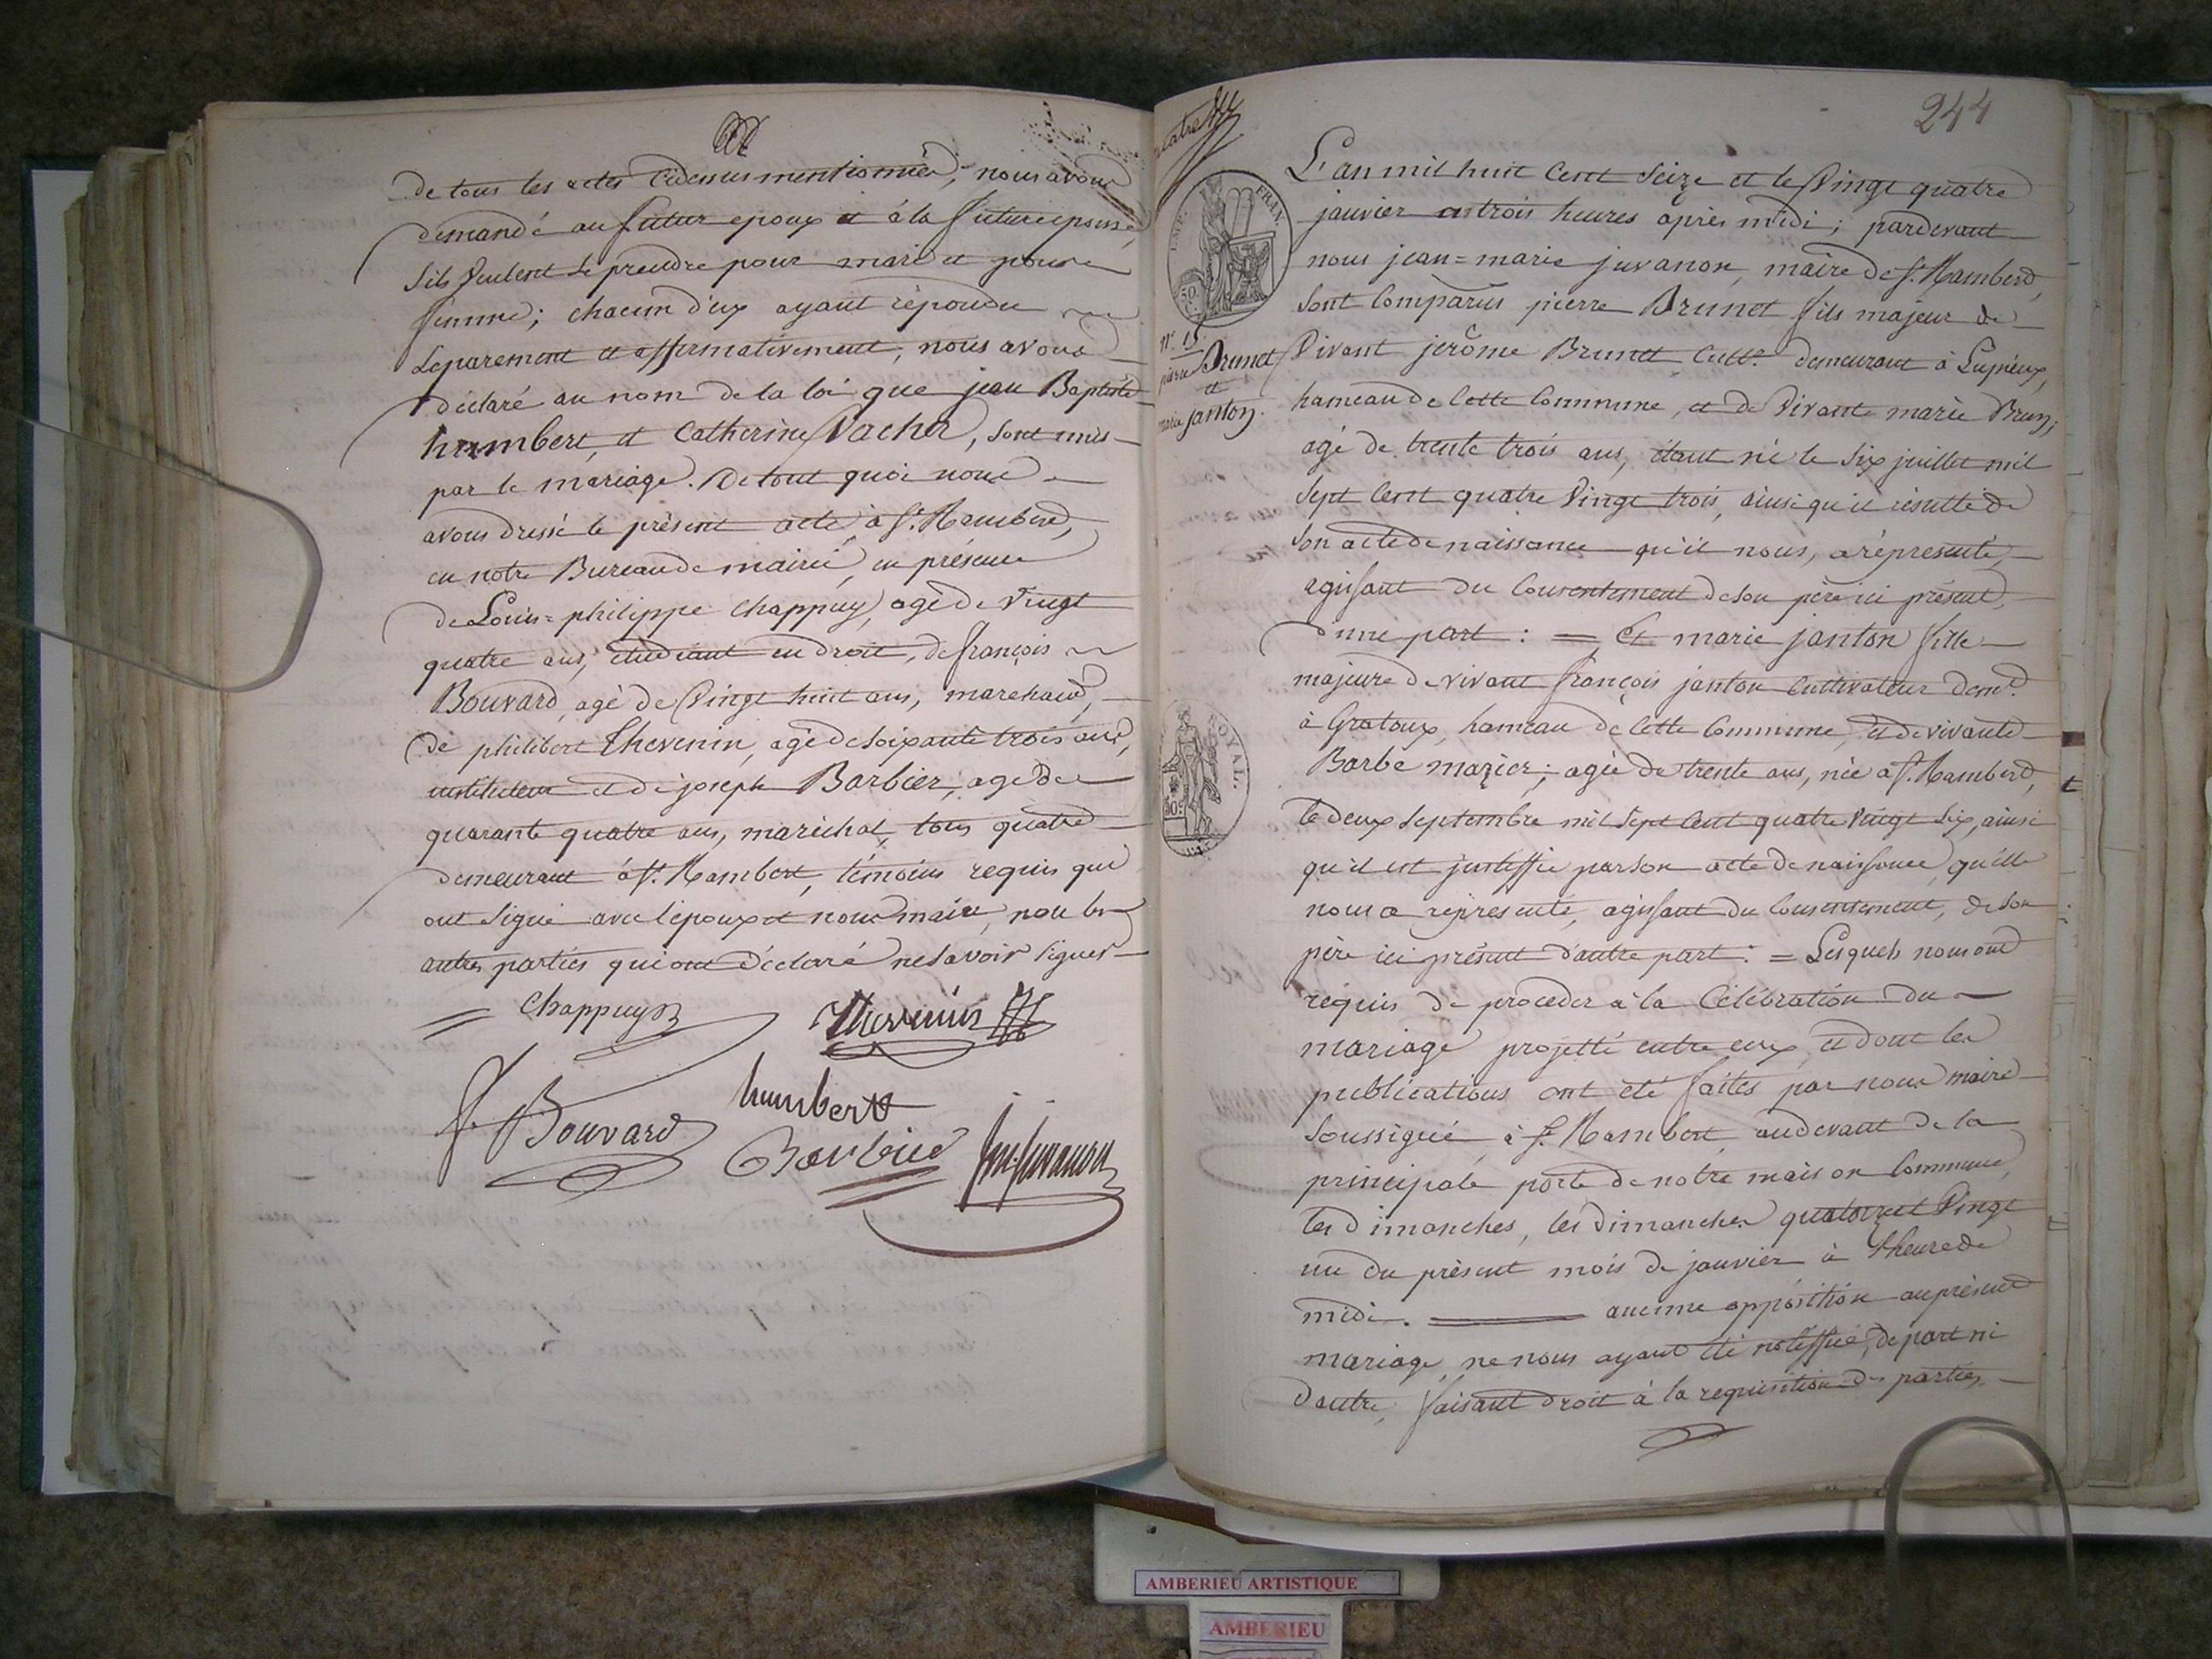 de tous les actes cidessus mentionnés, nous avons
demandé au futur epoux et à la future epouse,
s'ils veulent se prendre pour mari et pour
femme; chacun d'eux ayant répondu
separement et affirmativement, nous avons
déclaré au nom de la loi que jean Baptiste
humbert, et Catherine Vacher, sont unis
par le mariage. De tout quoi nous
avons dressé le présent acte, à St. Rambert,
en notre Bureau de mairie, en présence
de Louis=philippe Chappuy, agé de vingt
quatre ans, étudiant en droit, de françois
Bouvard, agé de vingt huit ans, marchand,
de philibert Thevenin, agé de soixante trois ans,
instituteur et de joseph Barbier, agé de
quarante quatre ans, maréchal, tous quatre
demeurant à St. Rambert, témoins requis qui
ont signé avec l'epoux et nous maire, non les
autres parties qui ont déclaré ne savoir signer
Chappuy Thevenin
humbert
f. Bouvard Barbier jm. juvanon
244
L'an mil huit cent seize et le vingt quatre
janvier à trois heures après midi; pardevant
nous jean=marie juvanon, maire de St. Rambert,
sont comparus pierre Brunet fils majeur de
vivant jerôme Brunet, cultr. demeurant à Lupieux,
hameau de cette commune, et de vivante marie Brun,
agé de trente trois ans, étant né le six juillet mil
sept cent quatre vingt trois, ainsi qu'il résulte de
son acte de naissance qu'il nous, a répresenté,
agissant du consentement de son père ici présent,
d'une part: = Et marie janton fille
majeure de vivant françois janton cultivateur demt.
à Gratoux, hameau de cette commune, et de vivante
Barbe mazier; agée de trente ans, née à St. Rambert,
le deux septembre mil sept cent quatre vingt six, ainsi
qu'il est justiffié par son acte de naissance, qu'elle
nous a répresenté, agissant du consentement, de son
père ici présent d'autre part: = Lesquels nous ont
requis de proceder à la célébration du
mariage projetté entre eux, et dont les
publications ont été faites par nous maire
soussigné, à St. Rambert, au devant de la
principale porte de notre maison commune,
les dimanches, les dimanches quatorze et vingt
un du présent mois de janvier à l'heure de
midi. aucune opposition au présent
mariage, ne nous ayant été notiffiée, de part ni
d'autre, faisant droit à la requisition des parties
EMP. FRAN.
50
ROYAL.
50
n°. 15.
pierre Brunet
et
marie janton.
AMBERIEU ARTISTIQUE
AMBERIEU